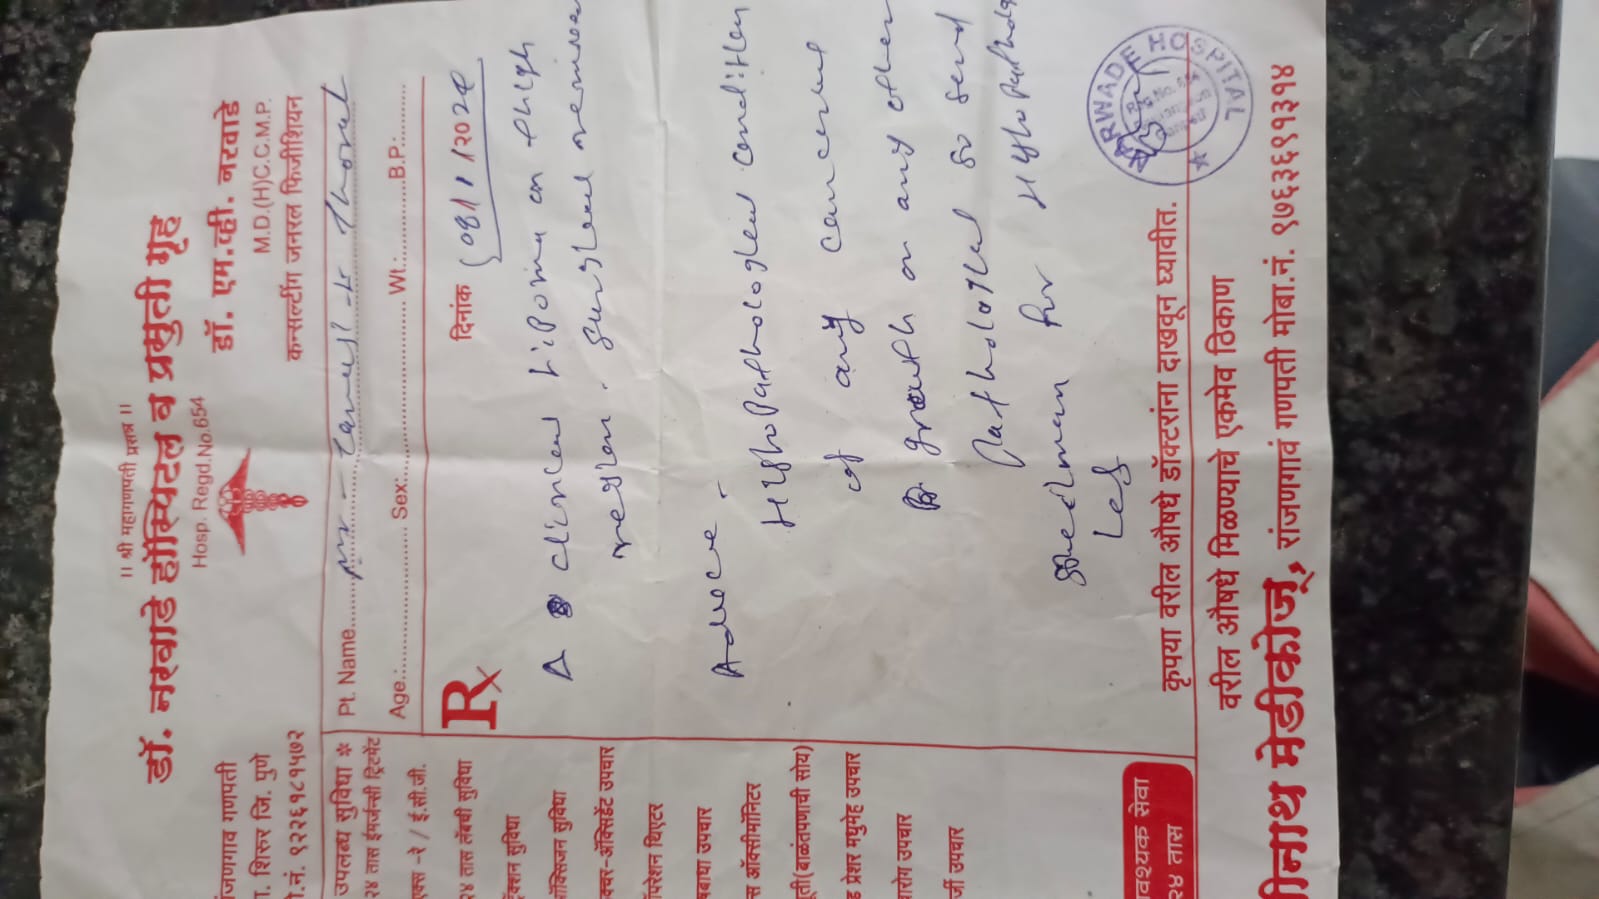 ॥ श्री महागणपती प्रसन्न ॥
डॉ. नरवाडे हॉस्पिटल व प्रसुती गृह
Hosp. Regd.No.654
डॉ. एम.व्ही. नरवाडे
M.D.(H)C.C.M.P.
कन्सल्टींग जनरल फिजीशियन
जणगाव गणपती
शिरुर जि. पुणे
नं. ९२२६१८१५७२
उपलब्ध सुविधा *
२४ तास ईमर्जन्सी ट्रिटमेंट
एक्स -रे / ई.सी.जी.
२४ तास लॅबची सुविधा
सुविधा
ऑक्सिजन सुविधा
ॲक्सिडेंट उपचार
ऑपरेशन थिएटर
उपचार
ऑक्सीमॉनिटर
(बाळंतपणाची सोय)
प्रेशर मधुमेह उपचार
उपचार
उपचार
सेवा
२४ तास
Pt. Name
Age: Sex: Wt: B.P.
दिनांक 08/1/2024
Rx
Δ clinical Lipoma on thigh
region. Surgical
Advice -
Hystopathological condition
of any cancerous
growth or any other
Pathological so send
for Hystopathology
NARWADE HOSPITAL
कृपया वरील औषधे डॉक्टरांना दाखवून घ्यावीत.
वरील औषधे मिळण्याचे एकमेव ठिकाण
नाथ मेडीकोज्, रांजणगाव गणपती मोबा.नं. ९७६३६९१३१४